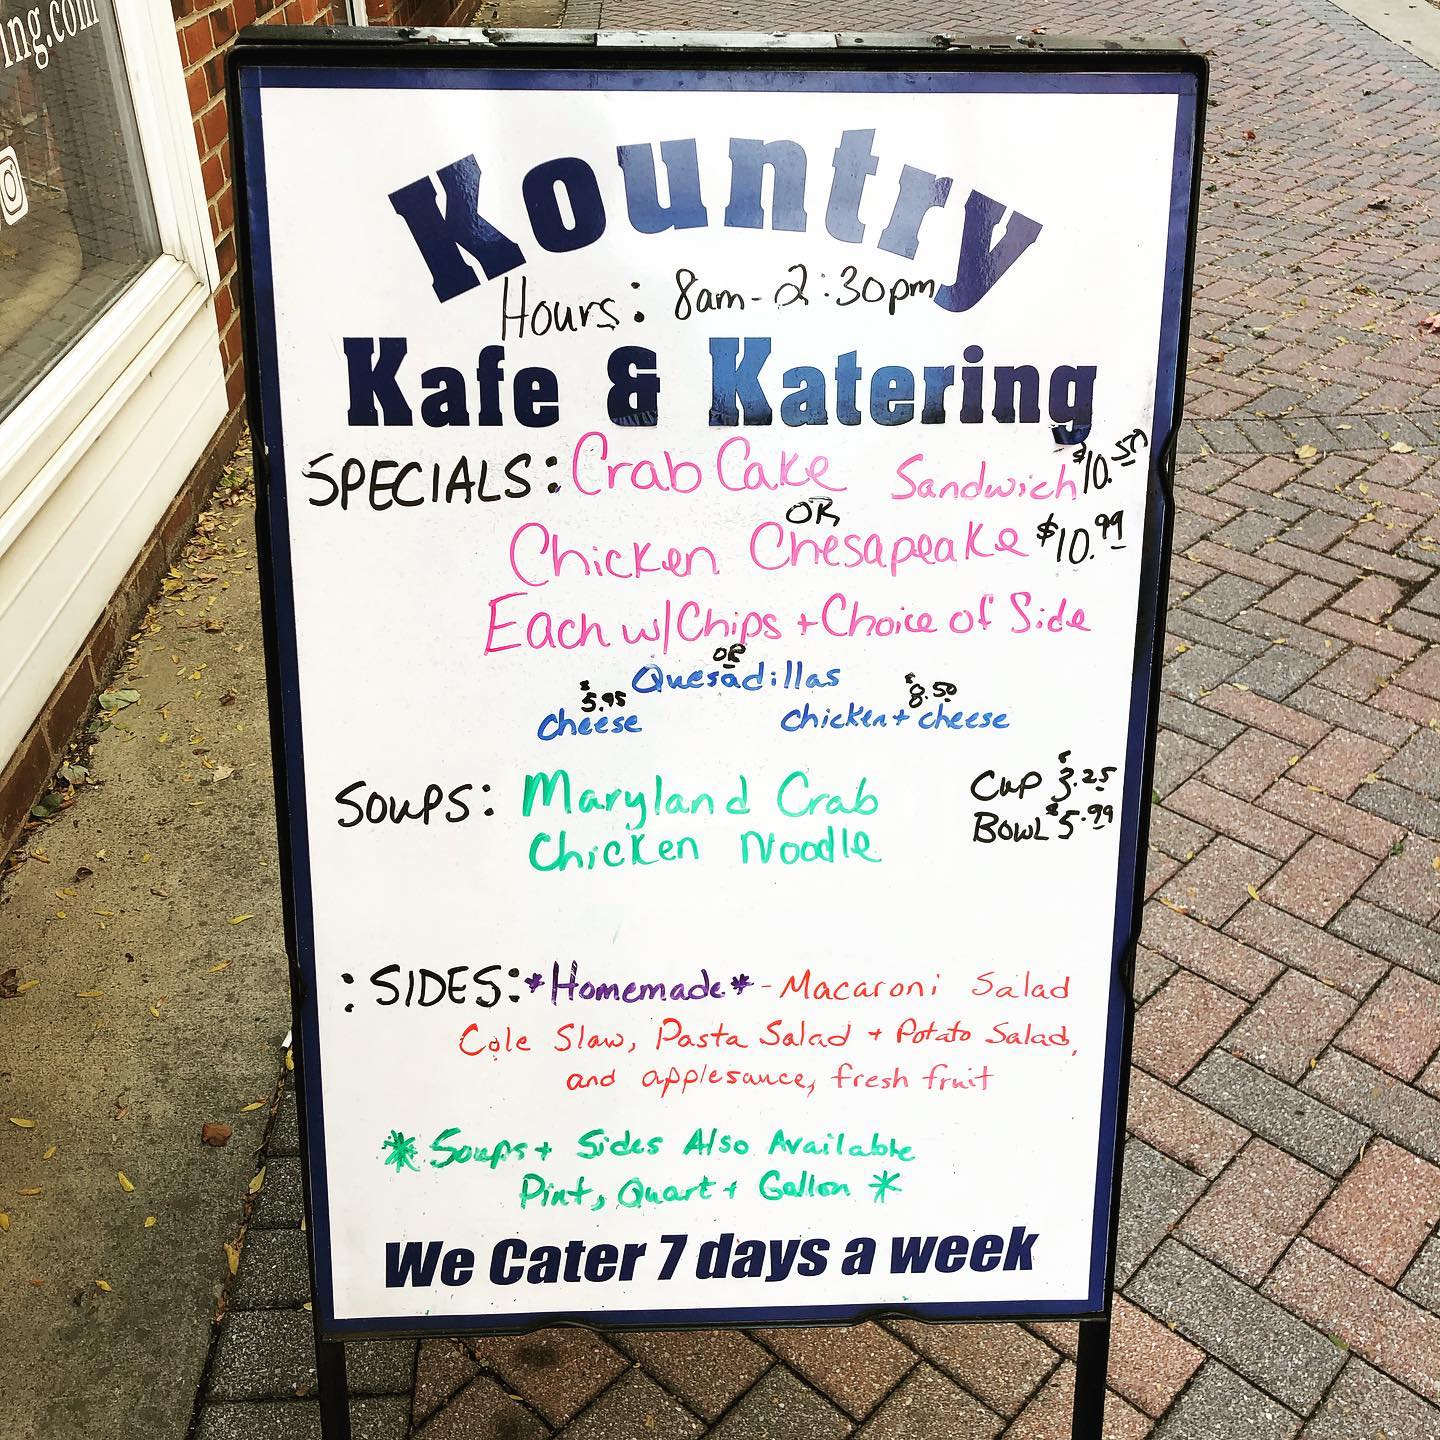 ing.com
Kountry
Hours: 8am-2:30pm
Kafe & Katering
SPECIALS: Crab Cake Sandwich $10.50
OR
Chicken Chesapeake $10.99
Each w/Chips + Choice of Side
OR
Quesadillas
$5.95 $8.50
cheese chicken + cheese
SOUPS: Maryland Crab Cup $3.25
Chicken Noodle BOWL $5.99
: SIDES: *Homemade* - Macaroni Salad
Cole Slaw, Pasta Salad + Potato Salad,
and applesauce, fresh fruit
* Soups + Sides Also Available
Pint, Quart + Gallon *
We Cater 7 days a week